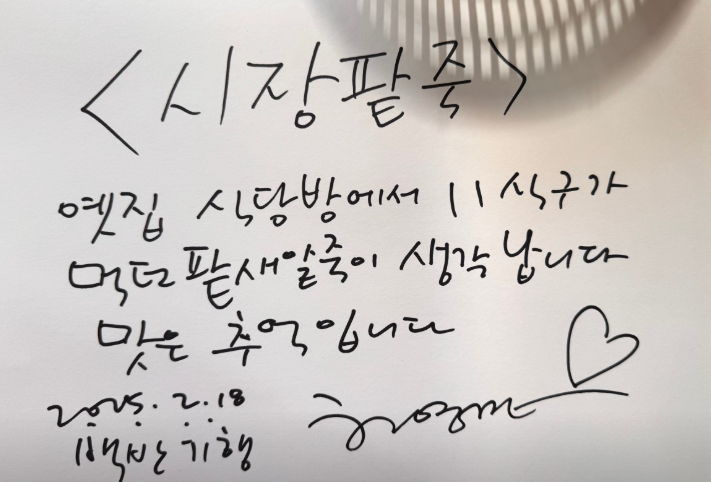 <시장팥죽>
옛집 식당방에서 11 식구가
먹던 팥새알죽이 생각납니다
맛은 추억입니다
2025. 2. 18
백반 기행